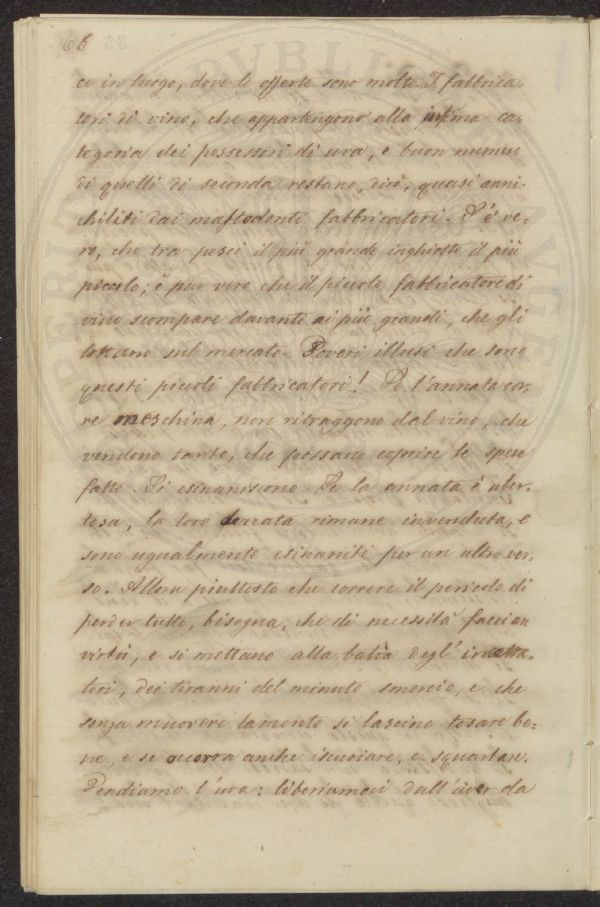 66
ce in luogo, dove le offerte sono molte. I fabbrica-
tori di vino, che appartengono alla infima ca-
tegoria dei possessori di uva, e buon numero
di quelli di seconda restano, dirò, quasi anni-
chiliti dai mastodonti fabbricatori. S'è ve-
ro, che tra pesci il più grande inghiotte il più
piccolo; è pur vero che il piccolo fabbricatore di
vino scompare davanti ai più grandi, che gli
lottano sul mercato. Poveri illusi che sono
questi piccoli fabbricatori! Se l'annata cor-
re meschina, non ritraggono dal vino, che
vendono tanto, che possano coprire le spese
fatte. Si esinaniscono. Se la annata è uber-
tosa, la loro derrata rimane invenduta, e
sono ugualmente esinaniti per un altro ver-
so. Allora piuttosto che correre il pericolo di
perder tutto, bisogna, che di necessità faccian
virtù, e si mettano alla balìa degl'incetta-
tori, dei tiranni del minuto smercio, e che
senza muovere lamento si lascino tosare be-
ne, e se occorra anche iscuoiare, e squartare.
Vendiamo l'uva: liberiamoci dall'aver da